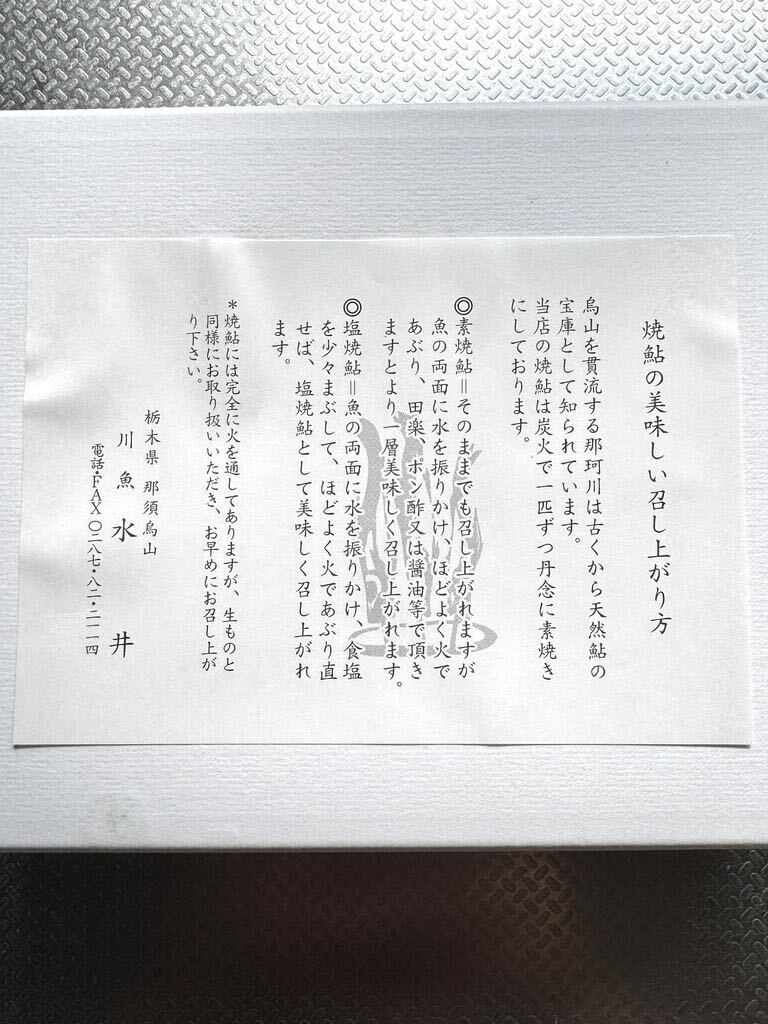 焼鮎の美味しい召し上がり方
烏山を貫流する那珂川は古くから天然鮎の
宝庫として知られています。
当店の焼鮎は炭火で一匹ずつ丹念に素焼き
にしております。
◎素焼鮎＝そのままでも召し上がれますが
魚の両面に水を振りかけ、ほどよく火で
あぶり、田楽、ポン酢又は醤油等で頂き
ますとより一層美味しく召し上がれます。
◎塩焼鮎＝魚の両面に水を振りかけ、食塩
を少々まぶして、ほどよく火であぶり直
せば、塩焼鮎として美味しく召し上がれ
ます。
＊焼鮎には完全に火を通してありますが、生ものと
同様にお取り扱いいただき、お早めにお召し上が
り下さい。
栃木県 那須烏山
川魚 水井
電話・FAX 〇二八七・八二・二一一四